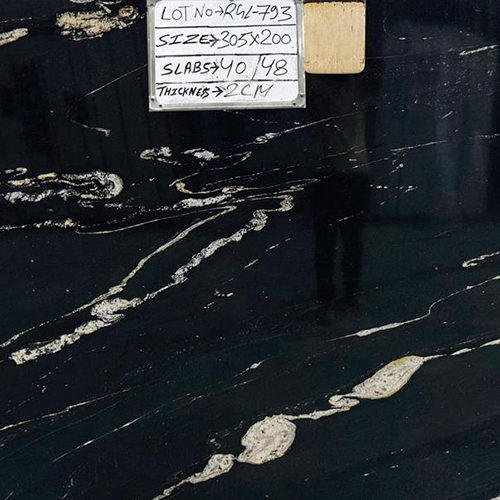 LOT NO→RGL-793
SIZE→305x200
SLABS→40/48
THICKNES→2CM